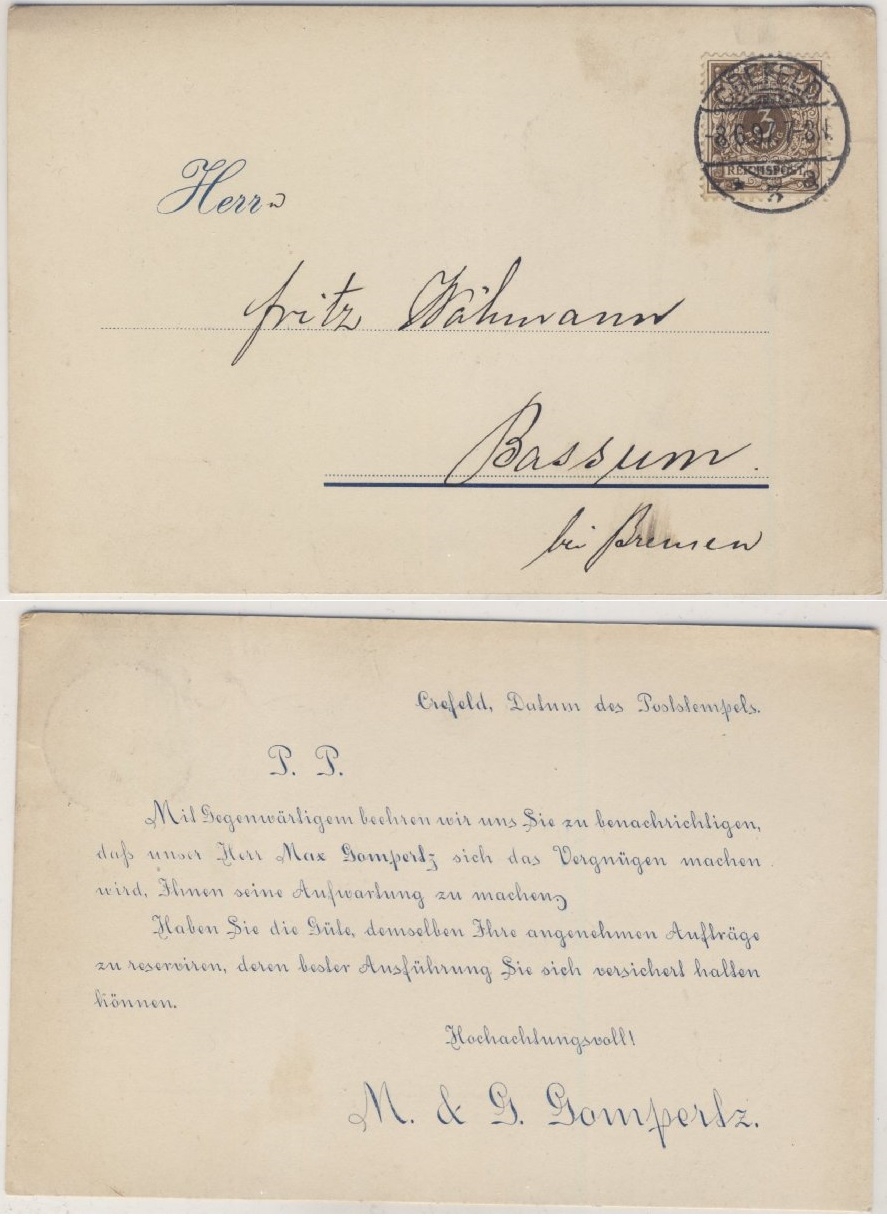 CREFELD
-8.6.97.7-8N.
* 2 a
3
PFENNIG
REICHSPOST
Herrn
Fritz Wöhmann
Bassum.
bei Bremen
Crefeld, Datum des Poststempels.
P. P.
Mit Gegenwärtigem beehren wir uns Sie zu benachrichtigen,
daß unser Herr Max Gompertz sich das Vergnügen machen
wird, Ihnen seine Aufwartung zu machen,
Haben Sie die Güte, demselben Ihre angenehmen Aufträge
zu reserviren, deren bester Ausführung Sie sich versichert halten
können.
Hochachtungsvoll!
M. & G. Gompertz.